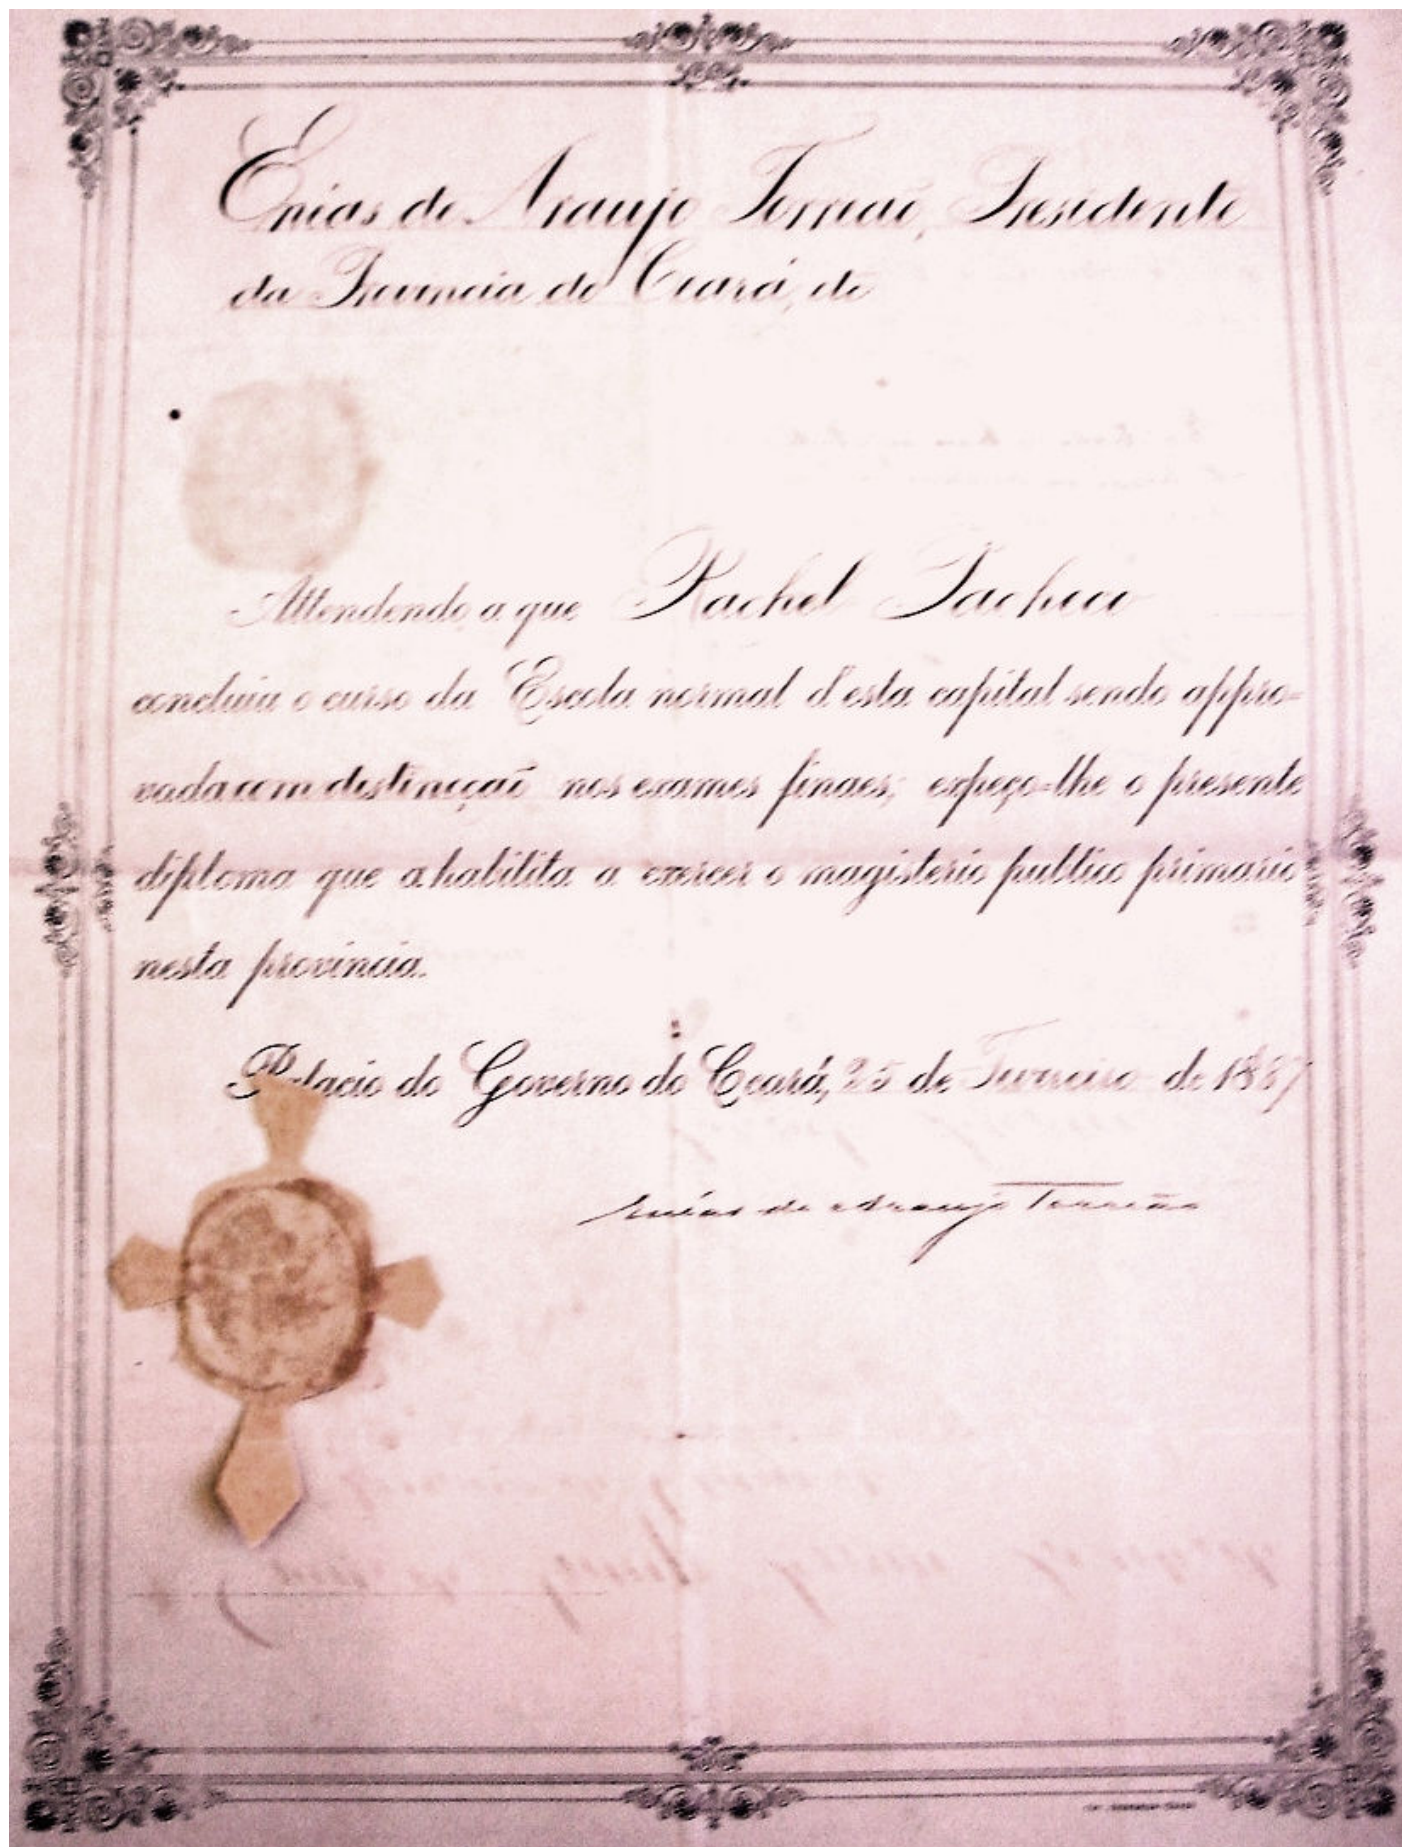 Enias de Araujo Torreaõ, Presidente
da Provincia do Ceará, etc
Attendendo a que Rachel Pacheco
concluiu o curso da Escola normal d'esta capital sendo appro=
vada com distincçaõ nos exames finaes; expeço-lhe o presente
diploma que a habilita a exercer o magisterio publico primario
nesta provincia.
Palacio do Governo do Ceará, 25 de Fevereiro de 1887
Enéas de Araujo Torreão